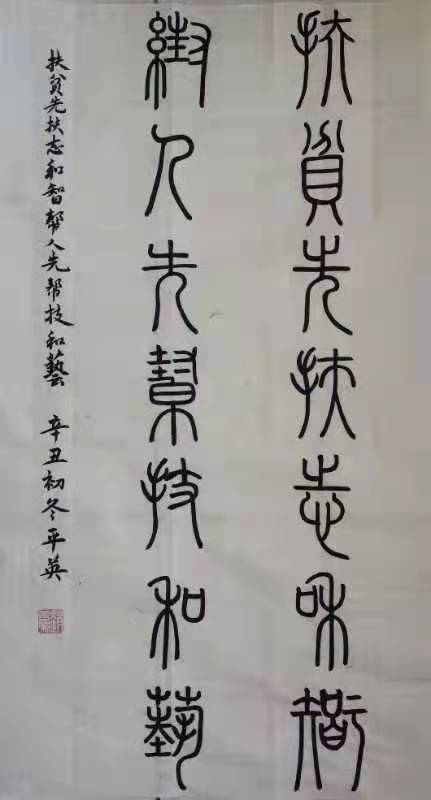 扶貧先扶志和智
綁人先幫技和藝
扶貧先扶志和智幫人先帮技和藝
辛丑初冬平英